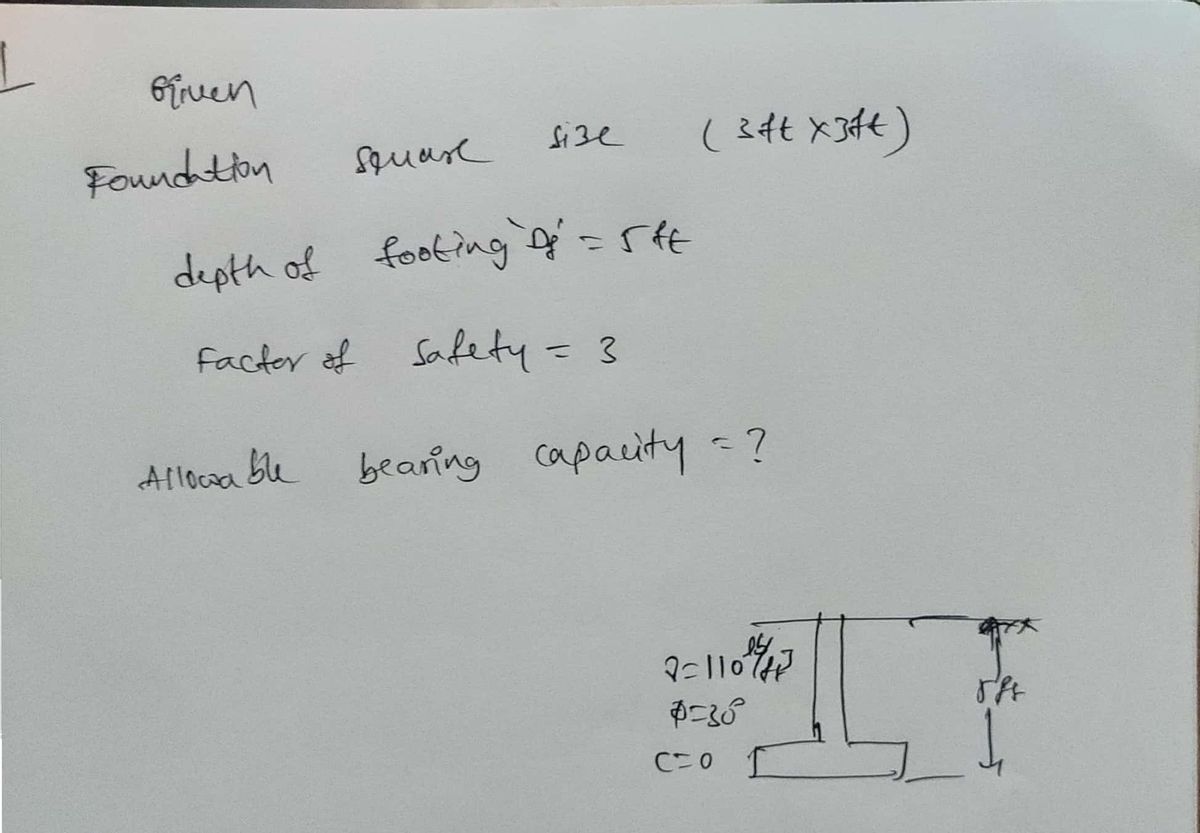 1
Given
Foundation square size (3ft x 3ft)
depth of footing 'Df' = 5ft
Factor of Safety = 3
Allowable bearing capacity = ?
γ=110 lb/ft3
φ=30°
C=0
5ft